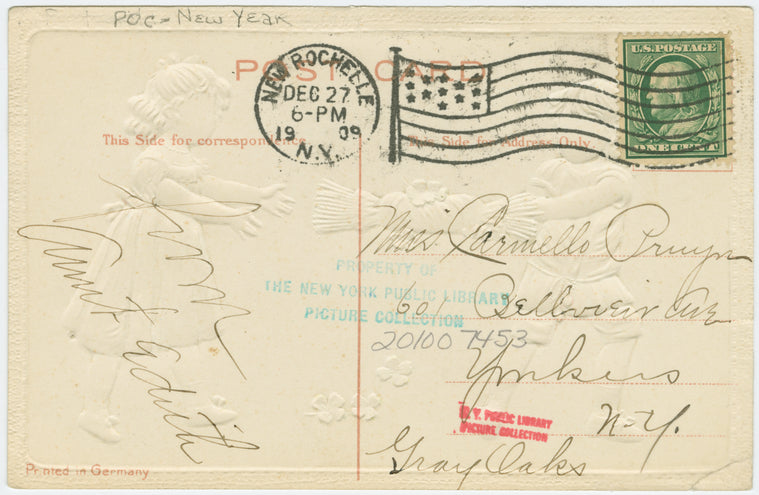 POC - New Year
POST CARD
NEW ROCHELLE
DEC 27
6-PM
1909
N.Y.
U.S. POSTAGE
ONE CENT
This Side for correspondence
This Side for Address Only.
from
Aunt Edith
Miss Carmello Pruyn
60 Bellevieu Ave
Yonkers
N-Y.
Gray Oaks
PROPERTY OF
THE NEW YORK PUBLIC LIBRARY
PICTURE COLLECTION
20100 7453
N. Y. PUBLIC LIBRARY
PICTURE COLLECTION
Printed in Germany